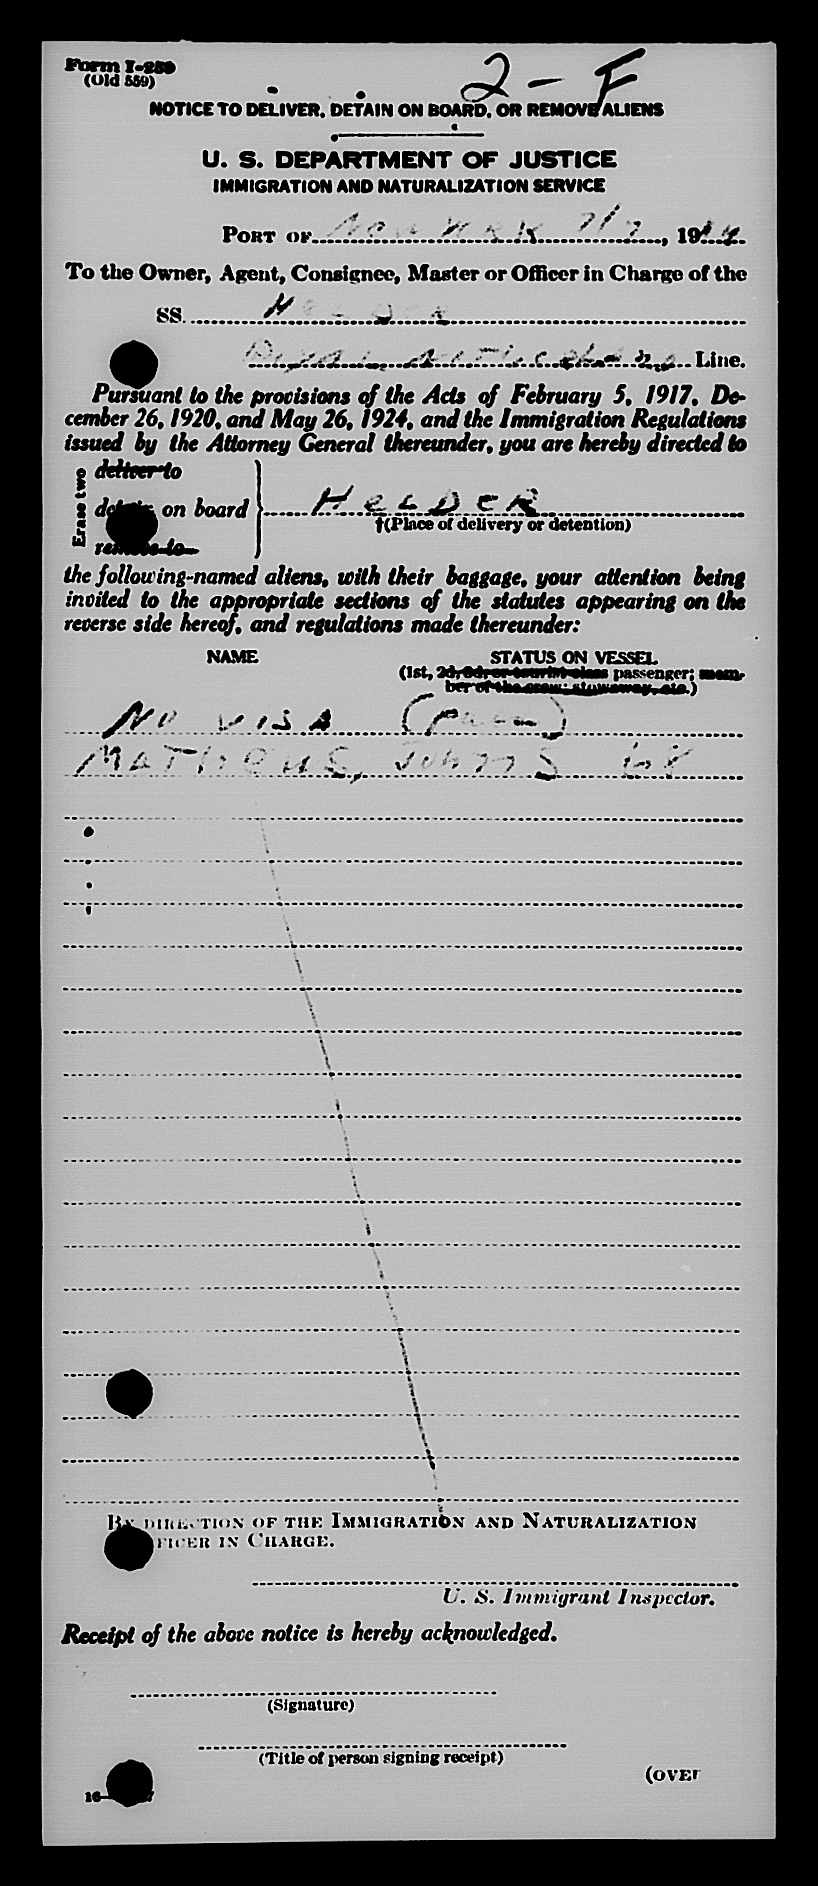 Form I-259
(Old 559)
2 - F
NOTICE TO DELIVER, DETAIN ON BOARD, OR REMOVE ALIENS
U. S. DEPARTMENT OF JUSTICE
IMMIGRATION AND NATURALIZATION SERVICE
PORT OF New York 7/7, 1944
To the Owner, Agent, Consignee, Master or Officer in Charge of the
SS. HELDER
Line.
Pursuant to the provisions of the Acts of February 5, 1917, De-
cember 26, 1920, and May 26, 1924, and the Immigration Regulations
issued by the Attorney General thereunder, you are hereby directed to
Erase two
deliver to
detain on board HELDER
†(Place of delivery or detention)
remove to
the following-named aliens, with their baggage, your attention being
invited to the appropriate sections of the statutes appearing on the
reverse side hereof, and regulations made thereunder:
NAME STATUS ON VESSEL
(1st, 2d, 3d, or tourist class passenger; mem-
ber of the crew; stowaway, etc.)
NO VISA
MATHEUS, 68
BY DIRECTION OF THE IMMIGRATION AND NATURALIZATION
OFFICER IN CHARGE.
U. S. Immigrant Inspector.
Receipt of the above notice is hereby acknowledged.
(Signature)
(Title of person signing receipt)
(OVER
16—